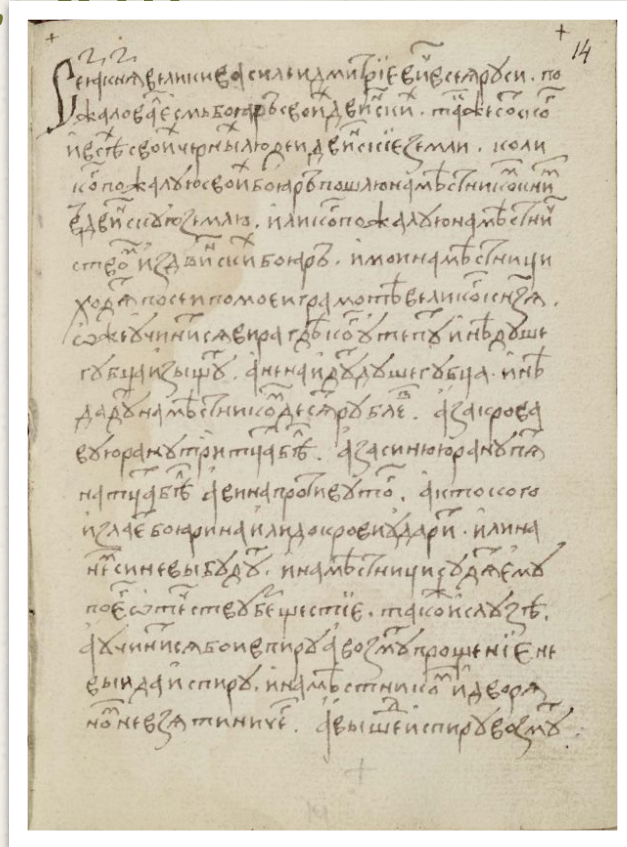 14
Се язъ кнѧзь великии василеи дмитрїевич всеѧ руси. по
жаловал есмь боꙗръ своих двинских. также соцког
и всѣх своих черных людеи двинскїе земли. коли
ког пожалую своих боꙗръ пошлю намѣстником к ним
в двинскую землю. или ког пожалую намѣстни
чством из двинских боꙗръ. и мои намѣстници
ходѧт по сеи по моеи грамотѣ великог кнзѧ.
ѡже учинитсѧ вира гдѣ ког утепут инѣ душе
губца изыщут. а не наидут душегубца. инѣ
дадут намѣстником десѧт рублев. а за крова
вую рану тритцат бѣл. а за синюю рану пѧт
натцат бѣл а вина противу того. а кто кого
излает боꙗрина или до крови ударит. или на
нем синевы будут. и намѣстници судѧт ему
по ег ѡтечеству бесчестїе. такоже и слузѣ.
а учинитсѧ бои в пиру а возмут прощенїе не
выидѧ ис пиру. и намѣстником и дворѧ
ном не взѧти ничег. а вышед ис пиру возмут